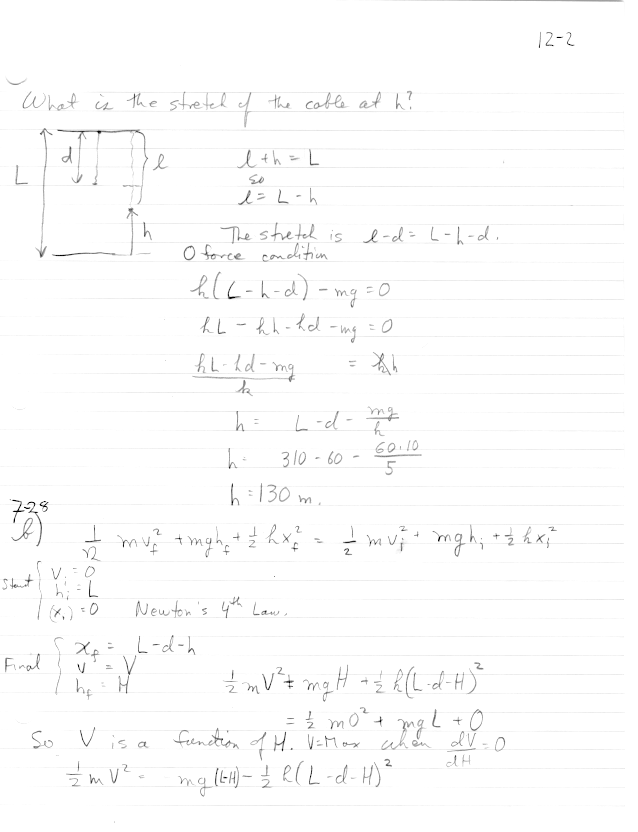 12-2
What is the stretch of the cable at h?
L d l h
l + h = L
so
l = L - h
The stretch is l-d = L-h-d.
0 force condition
k(L-h-d) - mg = 0
kL - kh - kd - mg = 0
(kL - kd - mg)/k = kh
h = L - d - mg/k
h = 310 - 60 - 60·10/5
h = 130 m.
7-28
b) 1/2 mv_f² + mgh_f + 1/2 kx_f² = 1/2 mv_i² + mgh_i + 1/2 kx_i²
Start { V_i = 0
h_i = L
(x_i) = 0 Newton's 4th Law.
Final { x_f = L-d-h
v = V
h_f = H
1/2 mV² + mgH + 1/2 k(L-d-H)²
= 1/2 m0² + mgL + 0
So V is a function of H. V=Max when dV/dH = 0
1/2 mV² = mg(L-H) - 1/2 k(L-d-H)²